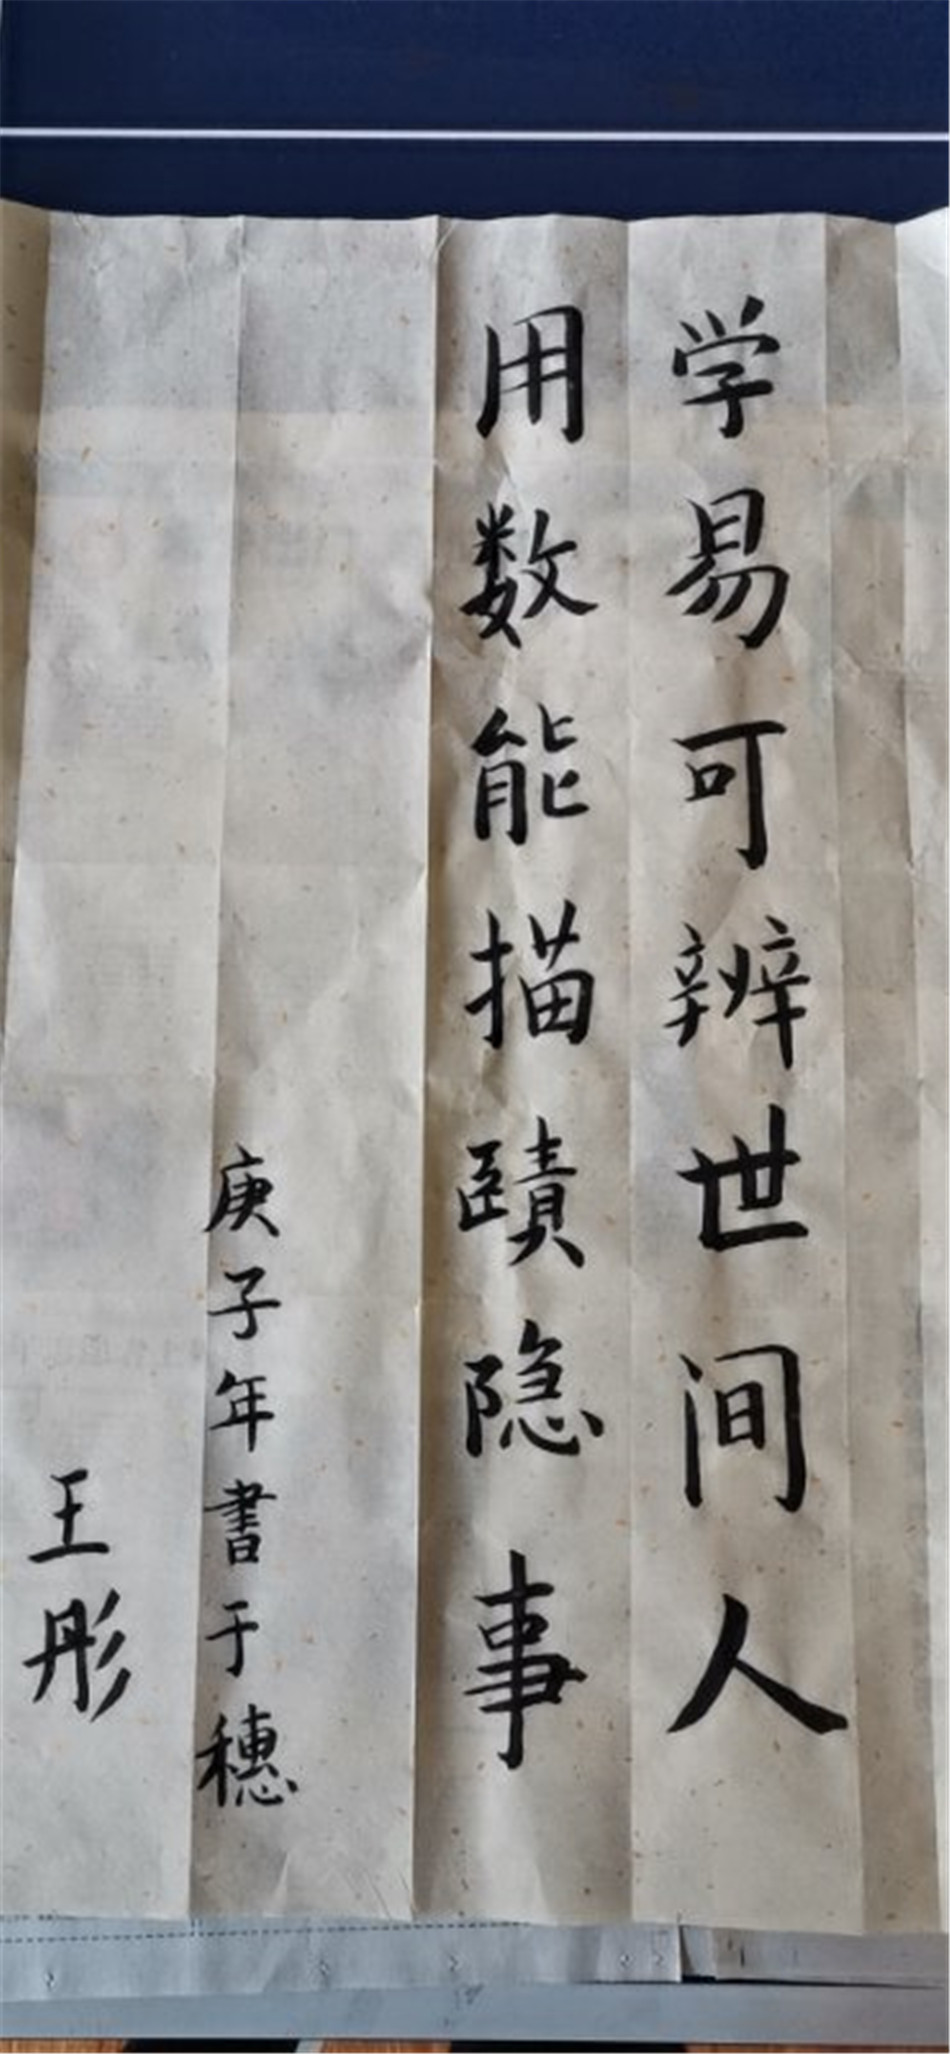 学易可辨世间人
用数能描赜隐事
庚子年書于穗
王彤